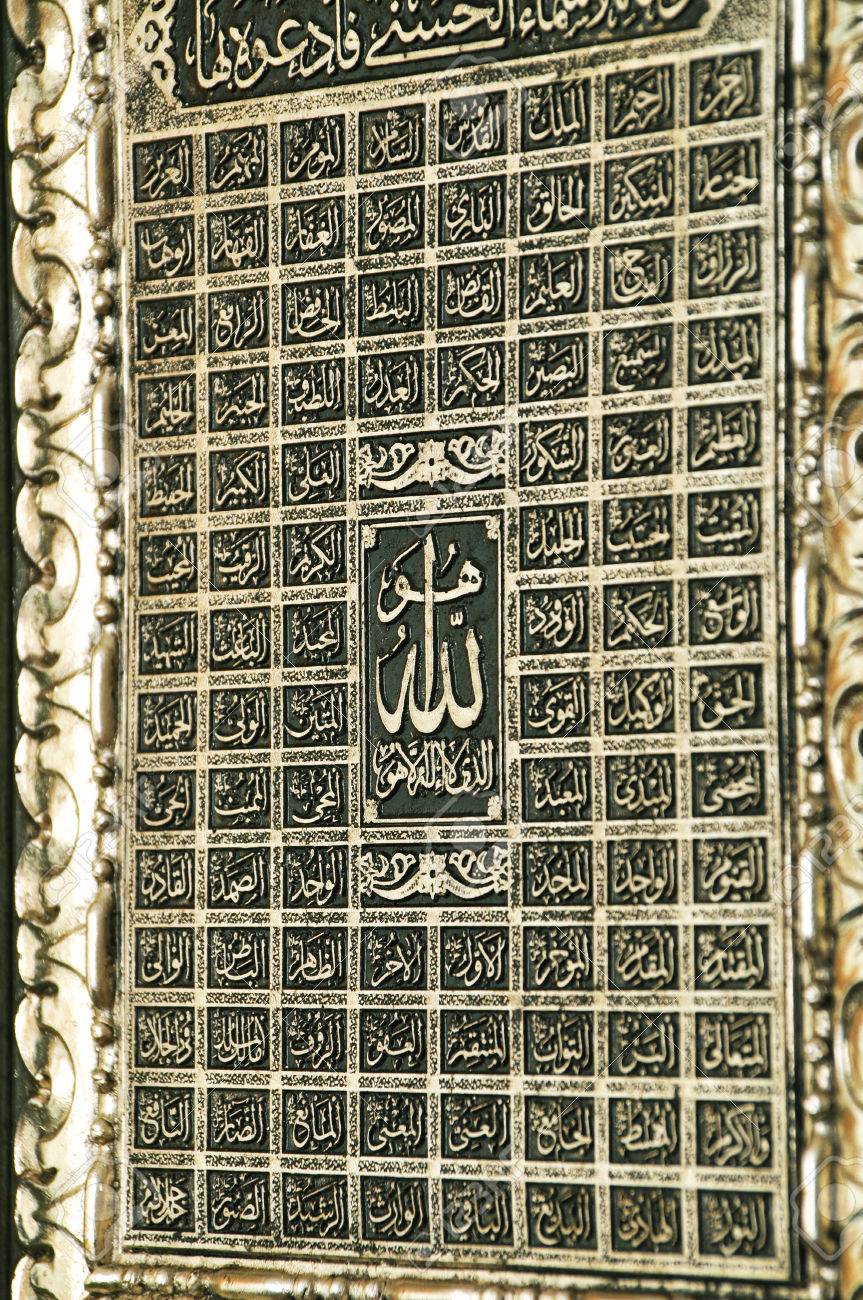 الأسماء الحسنى فادعوه بها
الرحمن الرحيم الملك القدوس السلام المؤمن المهيمن العزيز
الجبار المتكبر الخالق البارئ المصور الغفار القهار الوهاب
الرزاق الفتاح العليم القابض الباسط الخافض الرافع المعز
المذل السميع البصير الحكم العدل اللطيف الخبير الحليم
العظيم الغفور الشكور العلي الكبير الحفيظ
المقيت الحسيب الجليل الكريم الرقيب المجيب
هو
الله
الذي لا إله إلا هو
الواسع الحكيم الودود المجيد الباعث الشهيد
الحق الوكيل القوي المتين الولي الحميد
المحصي المبدئ المعيد المحيي المميت الحي
القيوم الواجد الماجد الواحد الصمد القادر
المقتدر المقدم المؤخر الأول الآخر الظاهر الباطن الوالي
المتعالي البر التواب المنتقم العفو الرؤوف مالك الملك ذو الجلال
والإكرام المقسط الجامع الغني المغني المانع الضار النافع
النور الهادي البديع الباقي الوارث الرشيد الصبور جل جلاله